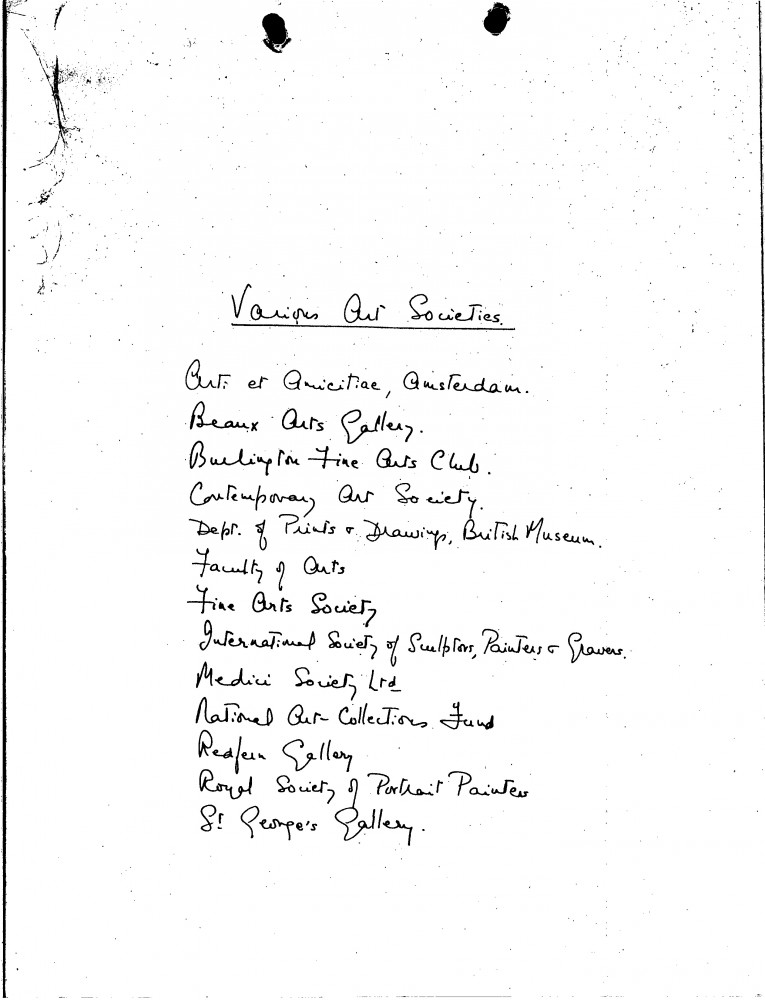 Various Art Societies.
Arti et Amicitiae, Amsterdam.
Beaux Arts Gallery.
Burlington Fine Arts Club.
Contemporary Art Society.
Dept. of Prints & Drawings, British Museum.
Faculty of Arts
Fine Arts Society
International Society of Sculptors, Painters & Gravers.
Medici Society Ltd
National Art-Collections Fund
Redfern Gallery
Royal Society of Portrait Painters
St George's Gallery.